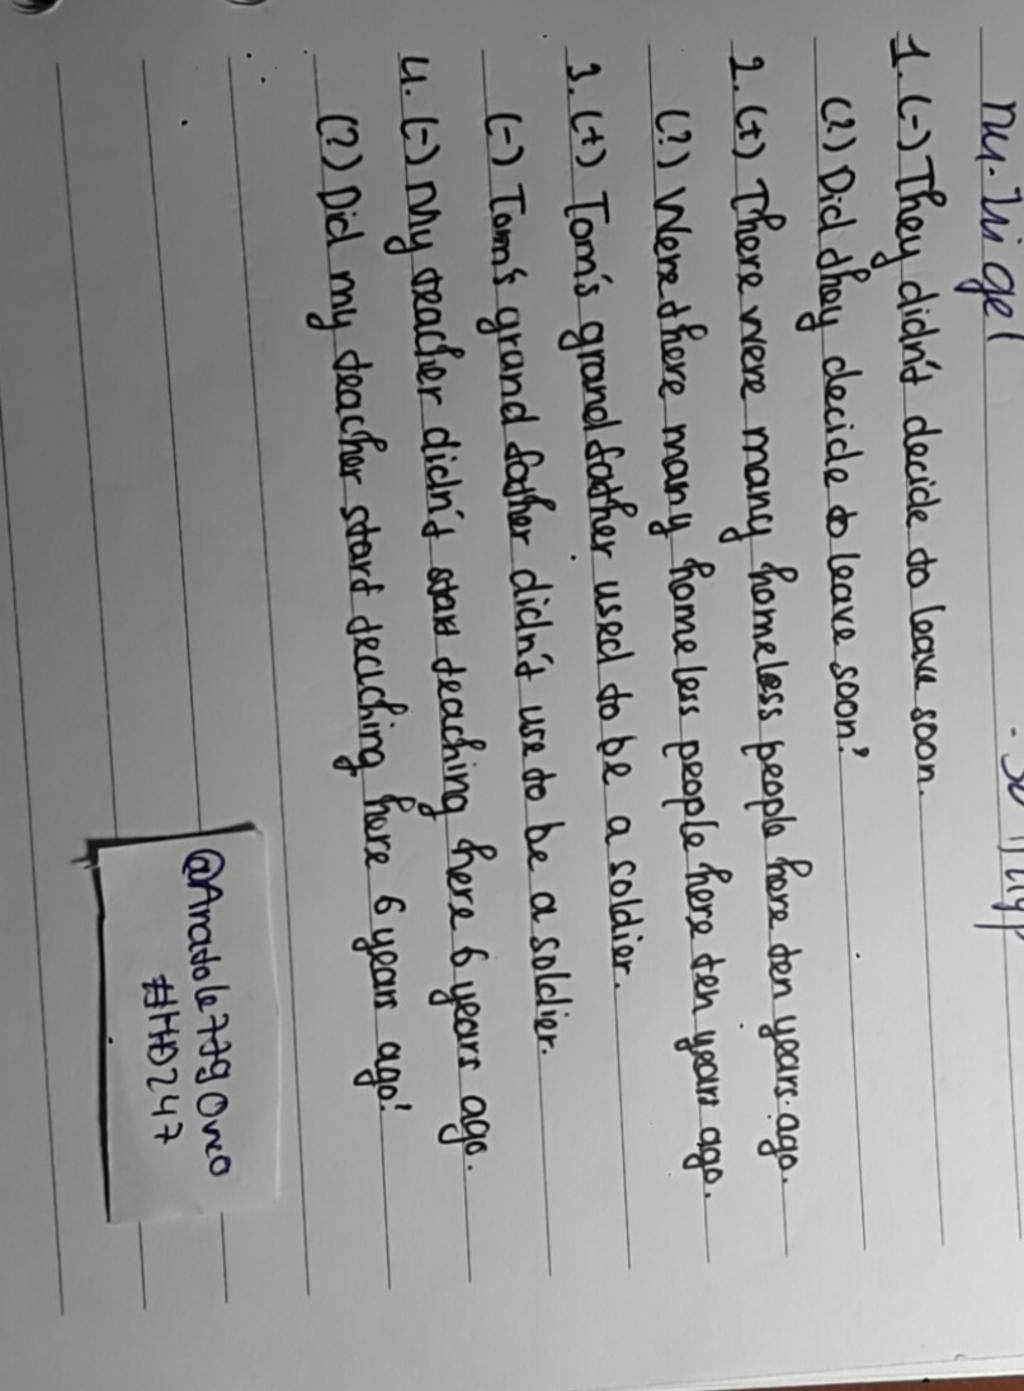 1. (-) They didn't decide to leave soon.
(?) Did they decide to leave soon?
2. (+) There were many homeless people here ten years ago.
(?) Were there many homeless people here ten years ago.
3. (+) Tom's grandfather used to be a soldier.
(-) Tom's grand father didn't use to be a soldier.
4. (-) My teacher didn't start teaching here 6 years ago.
(?) Did my teacher start teaching here 6 years ago?
#HD247